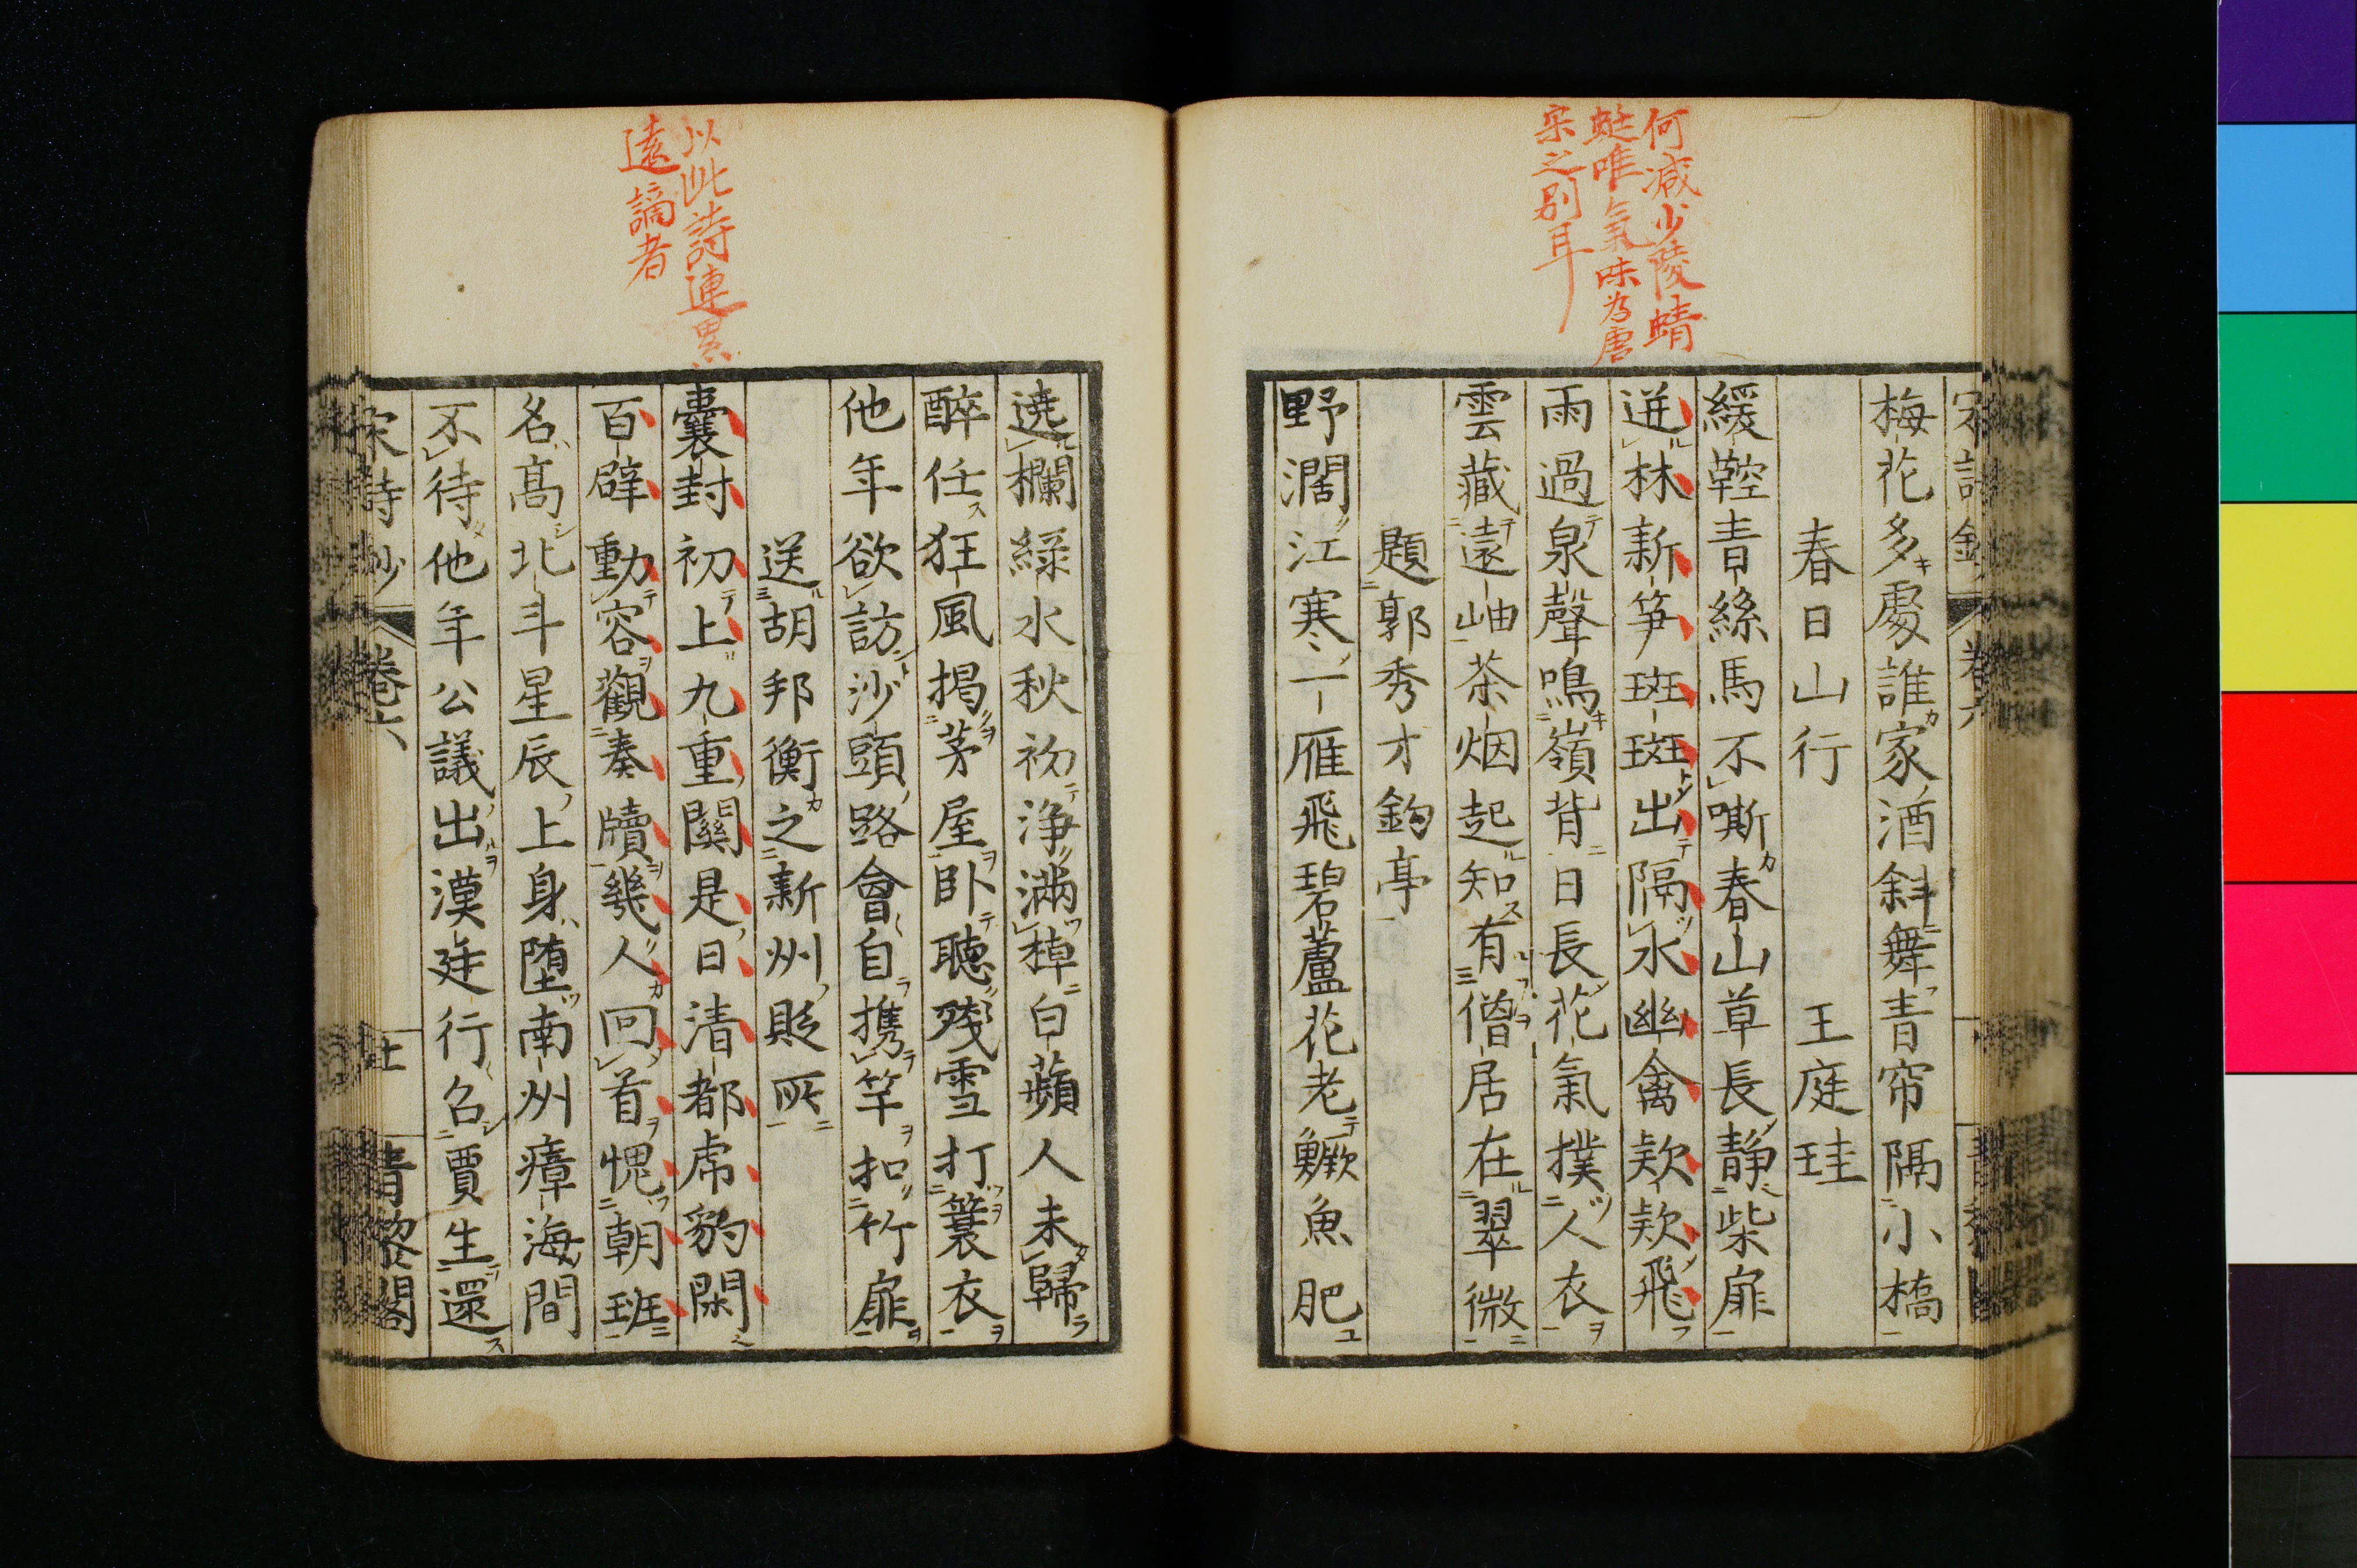 何減少陵蜻
蜓唯氣味為唐
宋之別耳
梅花多處誰家酒斜舞青帘隔小橋
春日山行　王庭珪
緩鞚青絲馬不嘶春山草長静柴扉
迸林新笋斑斑出隔水幽禽欵欵飛
雨過泉聲鳴嶺背日長花氣撲人衣
雲藏遠岫茶烟起知有僧居在翠微
題郭秀才釣亭
野濶江寒一雁飛碧蘆花老鱖魚肥
以此詩連累
遠謫者
遶欄緑水秋初浄滿棹白蘋人未歸
醉任狂風掲茅屋卧聽殘雪打簑衣
他年欲訪沙頭路會自携竿扣竹扉
送胡邦衡之新州貶所
囊封初上九重關是日清都虎豹閑
百辟動容觀奏牘幾人回首愧朝班
名高北斗星辰上身堕南州瘴海間
不待他年公議出漢廷行召賈生還
宋詩鈔　卷六　青黎閣